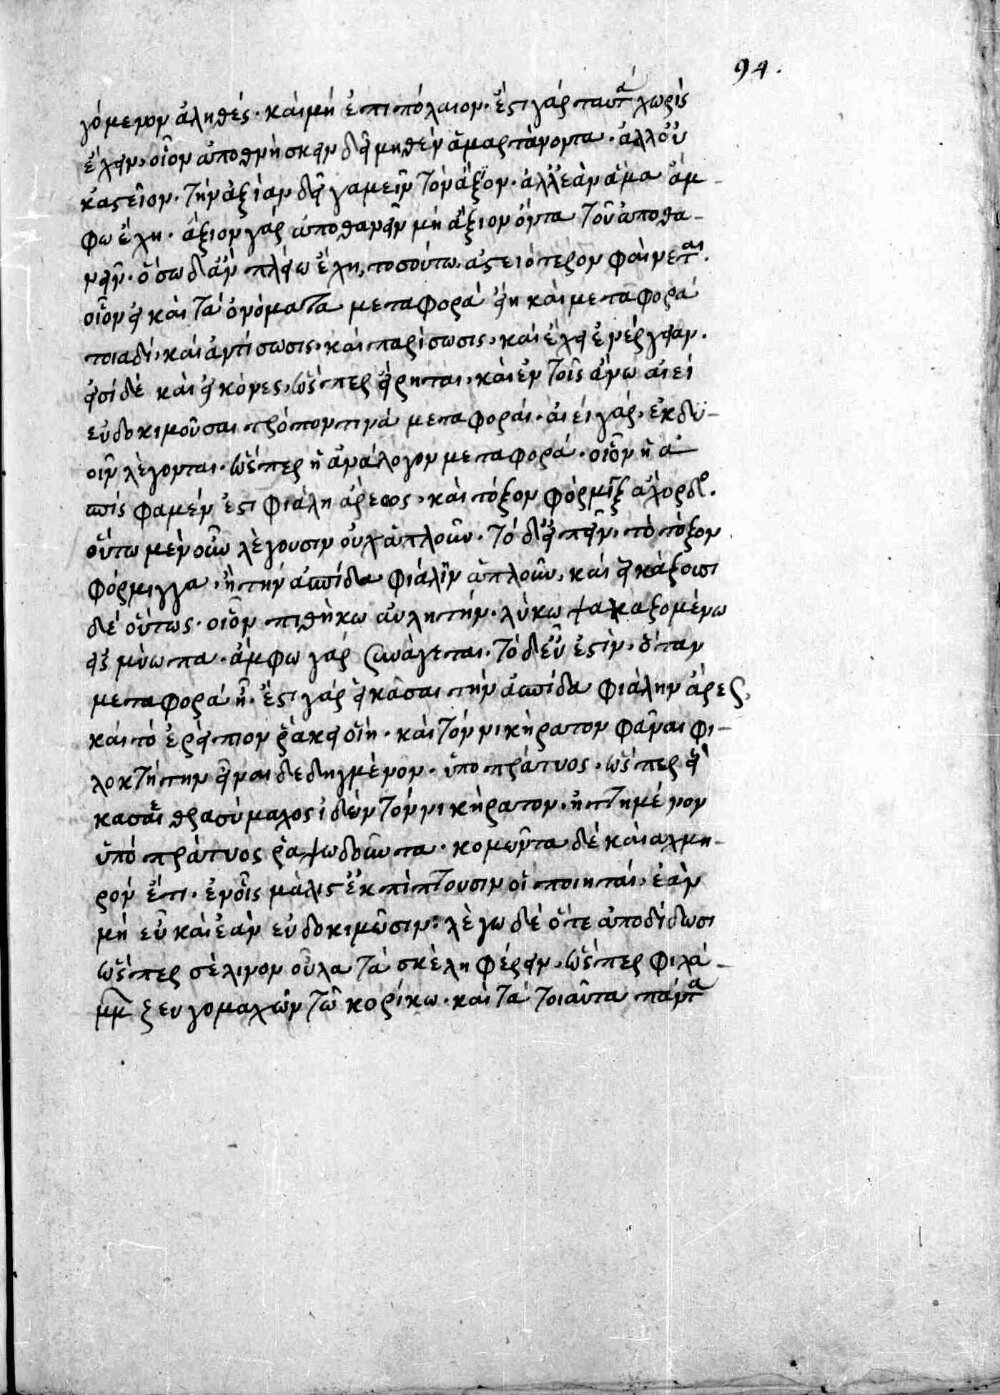 94.
γόμενον ἀληθές· καὶ μὴ ἐπιπόλαιον· ἔστι γὰρ ταῦτα χωρὶς
ἔχειν· οἷον ἀποθνήσκειν δεῖ μηθὲν ἁμαρτάνοντα· ἀλλ' οὐ
κ' ἀστεῖον· τὴν ἀξίαν δεῖ γαμεῖν τὸν ἄξιον· ἀλλ' ἐὰν ἅμα ἄμ-
φω ἔχη· ἄξιον γὰρ ἀποθανεῖν μὴ ἄξιον ὄντα τοῦ ἀποθα-
νεῖν· ὅσω δ' ἂν πλείω ἔχη, τοσούτω ἀστειότερον φαίνεται.
οἷον εἰ καὶ τὰ ὀνόματα μεταφορὰ εἴη καὶ μεταφορὰ
τοιαδὶ· καὶ ἀντίσωσις· καὶ παρίσωσις· καὶ ἔχει ἐνέργειαν.
εἰσὶ δὲ καὶ εἰκόνες, ὥσπερ εἴρηται, καὶ ἐν τοῖς ἄνω αἰεὶ
εὐδοκιμοῦσαι τρόπον τινὰ μεταφοραί· αἰεὶ γὰρ· ἐκ δυ-
οῖν λέγονται· ὥσπερ ἡ ἀνάλογον μεταφορά· οἷον ἡ ἀ
σπίς φαμέν ἐστι φιάλη ἄρεως, καὶ τόξον φόρμιγξ ἄχορδος.
οὕτω μὲν οὖν λέγουσιν οὐχ ἁπλοῦν· τὸ δ' εἰπεῖν, τὸ τόξον
φόρμιγγα, ἢ τὴν ἀσπίδα φιάλην ἁπλοῦν, καὶ εἰκάζουσι
δὲ οὕτως· οἷον πιθήκω αὐλητήν· λύκω ψακαζομένω
εἰς μύωπα· ἄμφω γὰρ συνάγεται· τὸ δ' εὖ ἐστίν, ὅταν
μεταφορὰ ἦ· ἔστι γὰρ εἰκᾶσαι τὴν ἀσπίδα φιάλην ἄρεος,
καὶ τὸ ἐρείπιον ῥάκει οἴη· καὶ τὸν νικήρατον φᾶναι φι-
λοκτήτην εἶναι δεδηγμένον· ὑπὸ πράτυος, ὥσπερ εἴ
κασαι θρασύμαχος ἰδὼν τὸν νικήρατον· ἡττημένον
ὑπὸ πράτυος ῥαψωδοῦντα· κομῶντα δὲ καὶ αὐχμη-
ρὸν ἔτι· ἐν οἷς μάλιστ' ἐκπίπτουσιν οἱ ποιηταί, ἐὰν
μὴ εὖ καὶ ἐὰν εὐδοκιμῶσιν: λέγω δὲ ὅτε ἀποδίδωσι
ὥσπερ σέλινον οὖλα τὰ σκέλη φέρειν, ὥσπερ φιλά-
μμων ζευγομαχῶν τῶ κορίκω· καὶ τὰ τοιαῦτα πάντα